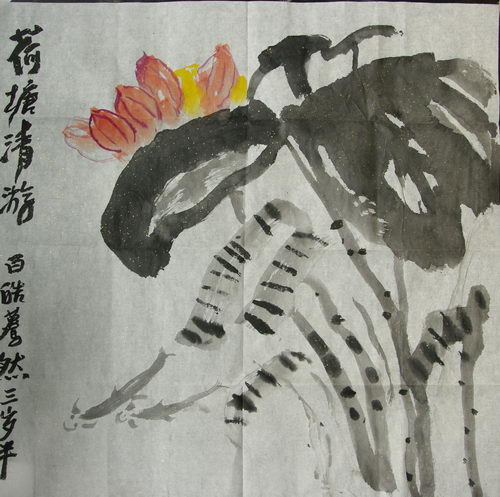 荷塘清游 百皓蓦然三岁半